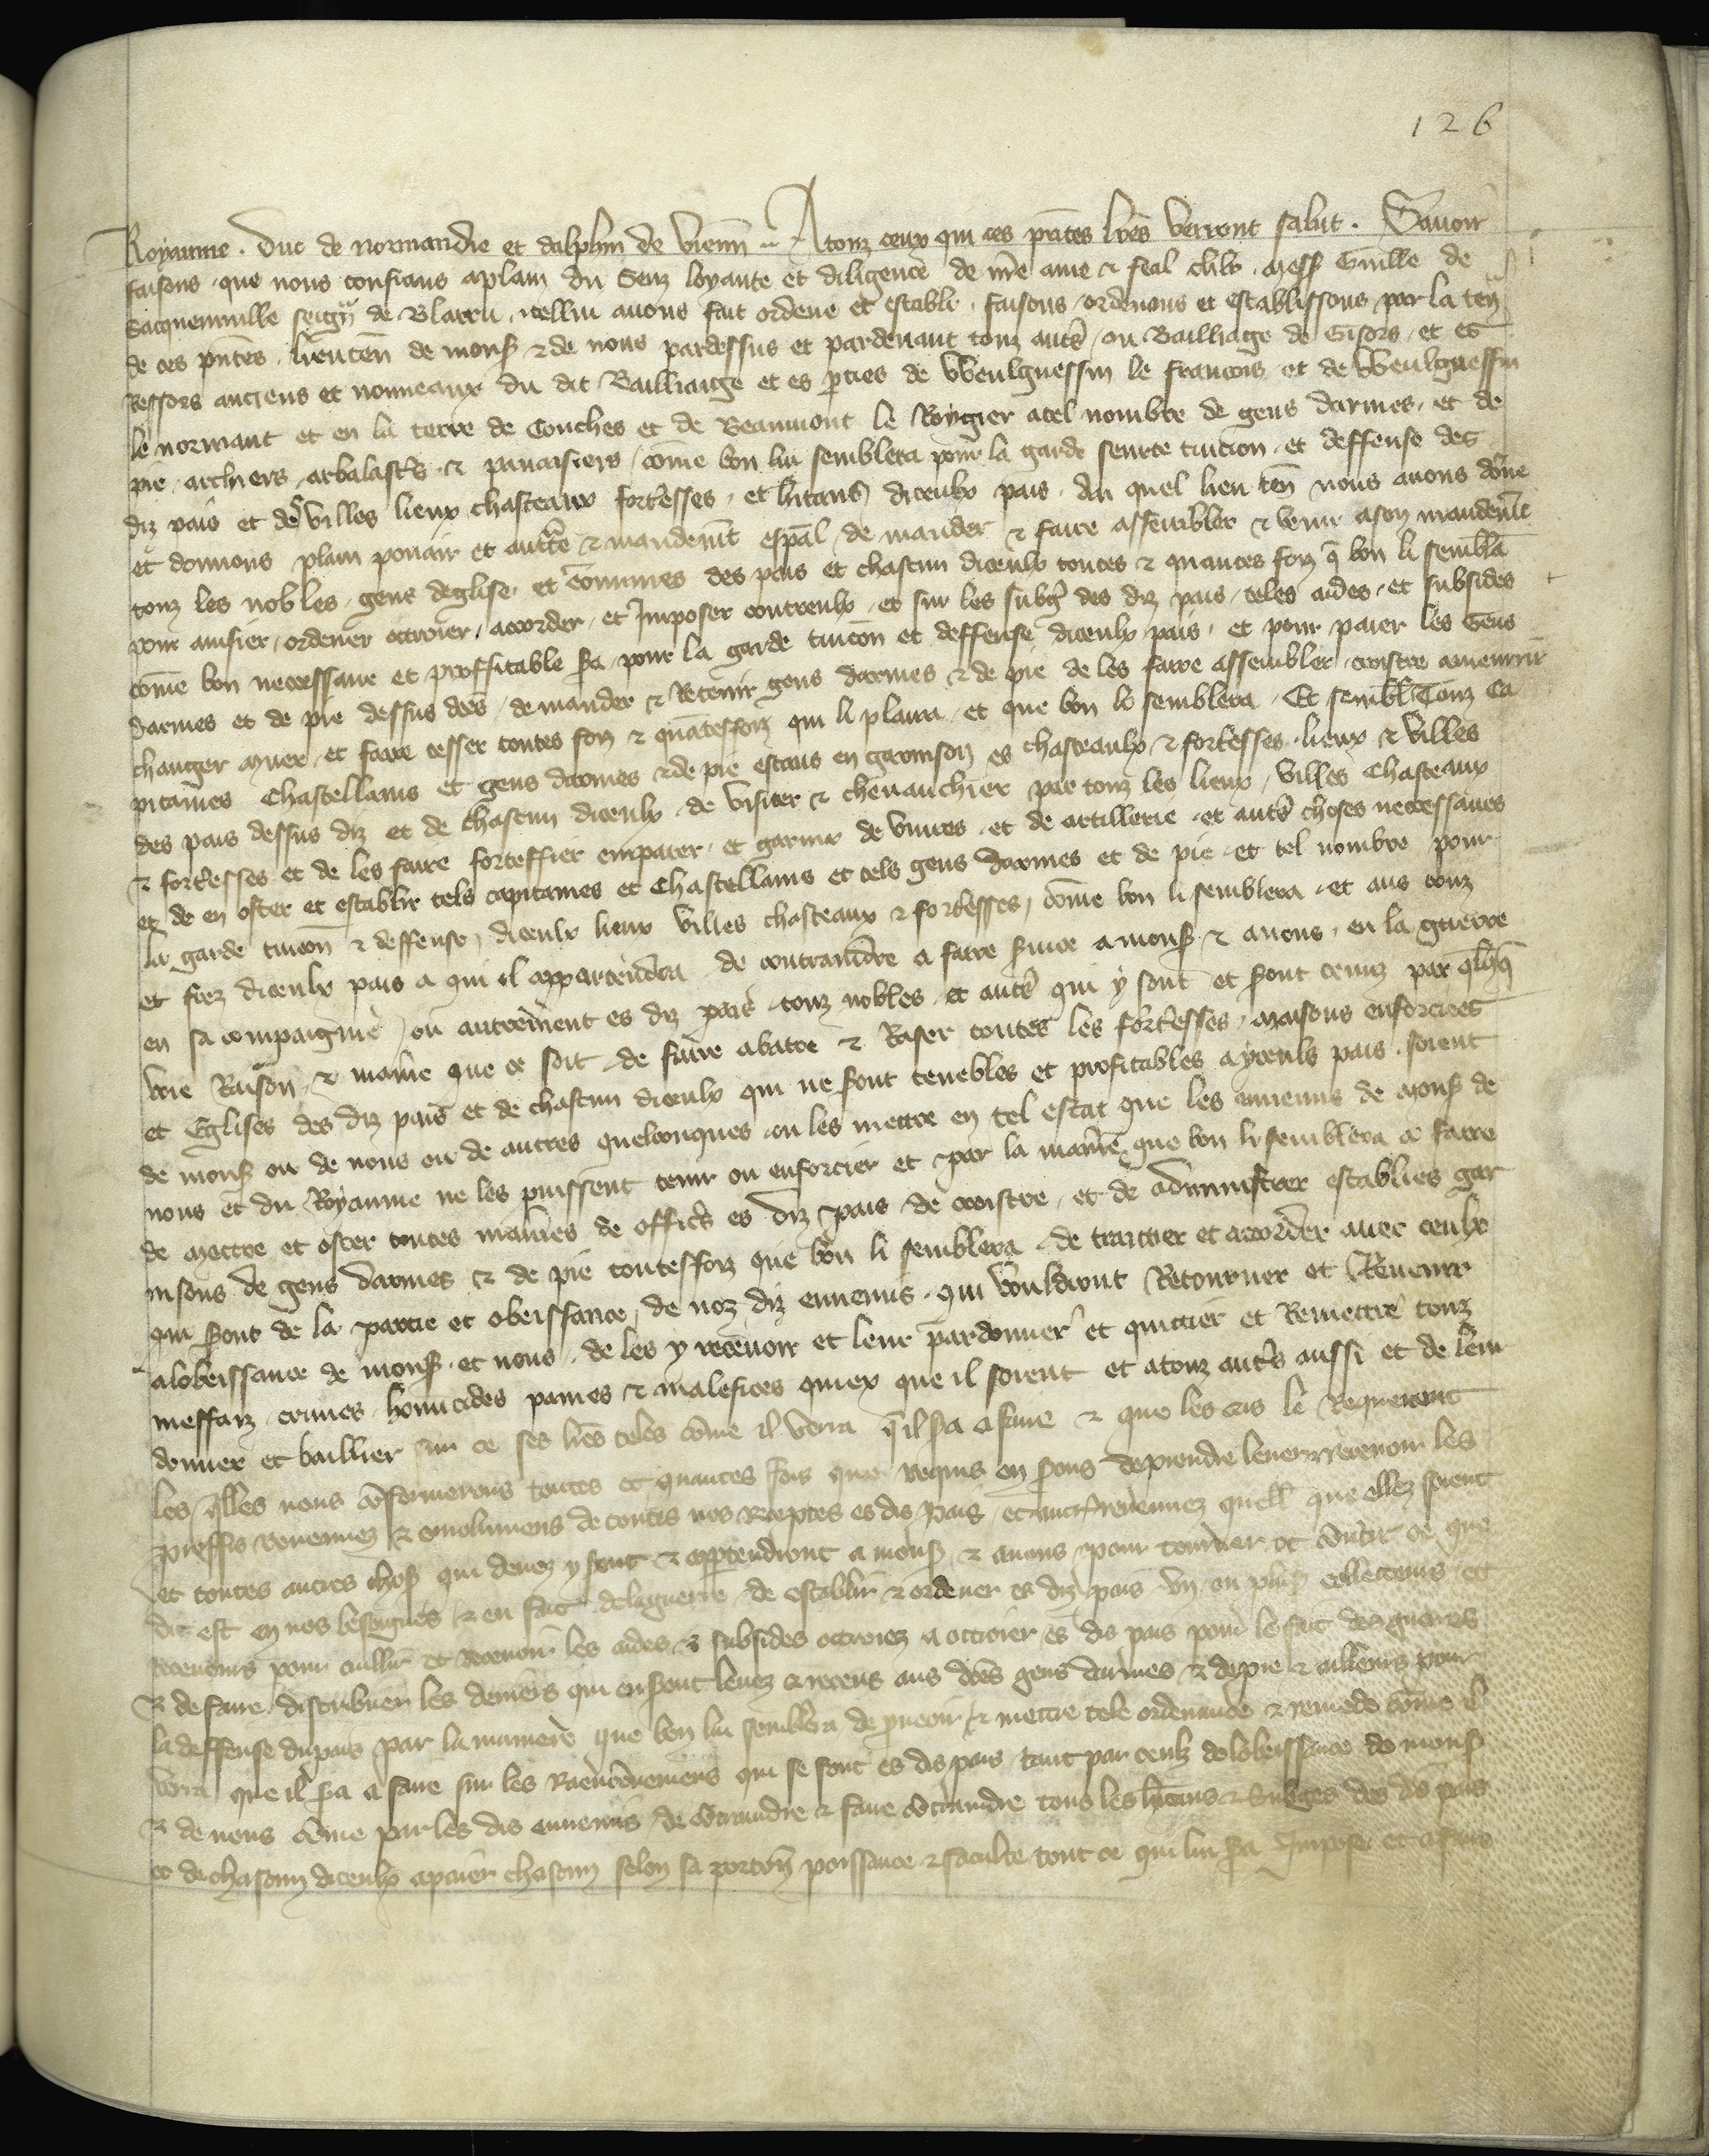 126
Royaume . Duc de normandie et dalphin de vienn̄ . A touz ceux qui ces p̄ntes lr̄es verront salut . Savoir
faisons . que nous confians aplain du senz loyaute et diligence de nr̄e ame & feal chlr . mess Guill̄e de
Sacquenville seign̄r de Blarru . icellui avons fait ordene et establi . faisons . ordenons et establissons par la ten̄
de ces pn̄tes . lieuten̄ de mons & de nous pardessus et pardevant touz autr̄ ou Bailliage de Gisors . et es
Ressors anciens et nouveaux du dit Bailliaige et es p̄ties de Weulguessin le francois et de Weulguessin
le normant et en la terre de Conches et de Beaumont le Rogier a tel nombre de gens darmes . et de
pie . archiers . arbalastr̄s . & pavaisiers / com̄e bon lui semblera pour la garde seurte tuicion . et deffense des
diz pais et des villes lieux chasteaux fort̄esses . et h̄itans diceulx pais . Au quel lieuten̄ nous avons don̄e
et donnons plain pouair et auct̄e & mandem̄t esp̄al / de mander & faire assembler & venir a son mandem̄t
touz les nobles . gens deglise . et com̄unes des pais et chascun diceulx toutes & quantes foiz q̄ bon li sembl̄a
pour avisier . ordener octroier . acorder . et Imposer contreulx . et sur les subḡ des diz pais . teles aides . et subsides
com̄e bon necessaire et proffitable s̄a . pour la garde tuicōn et deffense diceulx pais . et pour paier les Gens
darmes et de pie dessus d̄es . de mander & Retenir gens darmes & de pie de les faire assembler . croistre amenrir
changer muer . et faire cesser toutes foiz & quātesfoiz qui li plaira . et que bon li semblera . Et sembl̄ Touz Ca
pitaines Chastellains et gens darmes & de pie estans en garnison es chasteaulx & fort̄esses . lieux & villes
des pais dessus diz et de chascun diceulx . de visiter & chevauchier par touz les lieux . villes Chasteaux
& fort̄esses et de les faire forteffier emparer . et garnir de vivres . et de artillerie . et autr̄ choses necessaires
et de en oster et establir tels capitaines et Chastellains et tels gens darmes et de pie . et tel nombre pour
la garde tuicōn & deffense , diceulx lieux villes chasteaux & fort̄esses , com̄e bon li semblera . et aus couz
et fraiz diceulx pais a qui il appartendra . de contraindre a faire s̄vice a mons & a nous . en la guerre
en sa compaignie / ou autrem̄ent es diz pais . touz nobles . et autr̄ qui y sont et s̄ont tenuz par q̄lq̄
voie Raison & man̄e que ce soit . de faire abatre & Raser toutes les fort̄esses . maisons enforciees
et Eglises des diz pais et de chascun diceulx qui ne s̄ont tenebles et profitables a yceuls pais . soient
de mons ou de nous ou de autres quelconques . ou les mettre en tel estat que les ennemis de Mons de
nous et du Royaume ne les puissent tenir ou enforcier et par la man̄e que bon li semblera a faire
de mettre et oster toutes manieres de offic̄s es diz pais . de croistre . et de administrer establies gar
nisons de gens darmes & de pie toutesfoiz que bon li semblera . de traictier et accorder avec ceulx
qui s̄ont de la partie et obeissance , de noz diz ennemis . qui vouldront Retourner et Revenir
a lobeissance de mons . et nous . de les y recevoir et leur pardonner et quictier et Remettre touz
meffaiz . crimes . homicides paines & malefices quiex que il soient et a touz aut̄s aussi et de leur
donner et baillier sur ce ses lr̄es teles com̄e il verra q̄ il s̄a a faire & que les cas le Requerront
les q̄lles nous confermerons toutes et quantes fois que requis en s̄ons de prendre lever & recevoir les
proffis revenuez & emolumens de toutes nos receptes es dis pais . et autr̄ revenuez quell̄ que ellez soient
et toutes autres chos̄ qui deuez y sont & app̄tendront a mons & a nous pour tourner et cōvertir ce que
dit est en nos besoignes & en fait de la guerre . de establir & ordener es diz pais un ou plus̄ collecteurs et
receveurs pour cuillir et recevoir les aides & subsides octroiez a octroier es dis pais pour le fait des guerres
& de faire distribuer les deniers qui en s̄ont levez & receus aus d̄es gens darmes & de pie & ailleurs pour
la deffense du pais par la maniere que bon lui semblera de p̄veoir & mettre tele ordenance & remede com̄e il
verra que il s̄a a faire sur les raenconnemens qui se font es dis pais tant par ceulz de lobeissance de mons
& de nous com̄e par les dis ennemis / de cōtraindre & faire cōtraindre tous les h̄itans & subges des dis pais
et de chascun diceulx a paier chascun selon sa porcōn poissance & faculte tout ce qui lui s̄a Impose et a faire